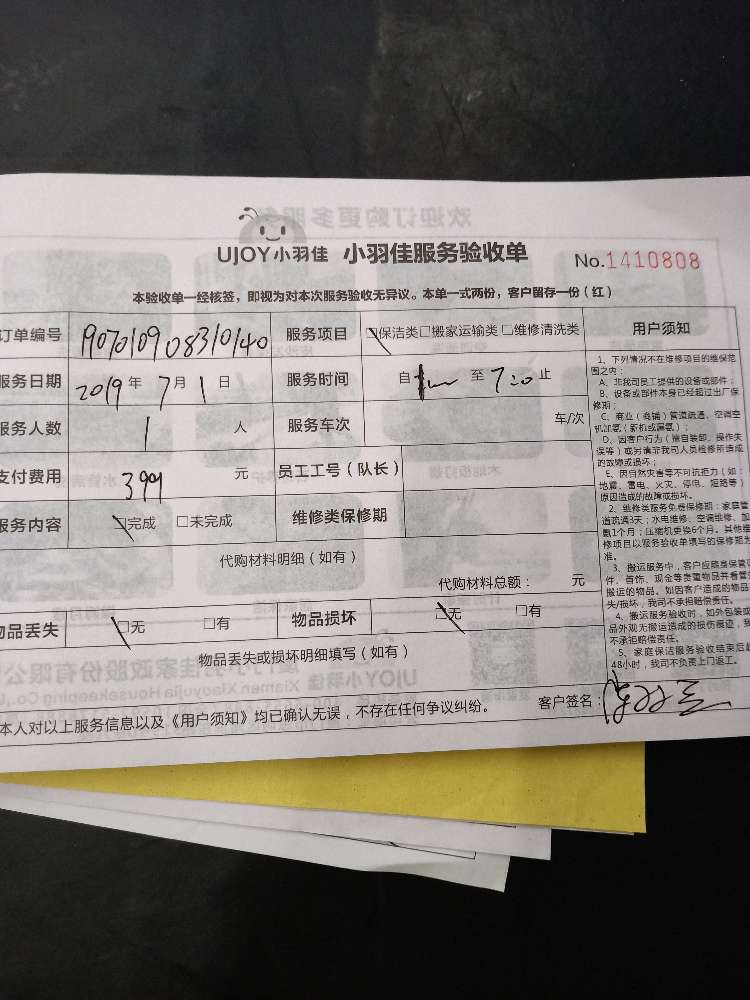 UJOY小羽佳 小羽佳服务验收单 No.1410808
本验收单一经核签，即视为对本次服务验收无异议。本单一式两份，客户留存一份（红）
订单编号 1907010908310140 服务项目 保洁类□搬家运输类□维修清洗类 用户须知
服务日期 2019年7月1日 服务时间 自 至 7:20 止
服务人数 1 人 服务车次 车/次
支付费用 399 元 员工工号（队长）
服务内容 □完成 □未完成 维修类保修期
代购材料明细（如有）
代购材料总额： 元
物品丢失 □无 □有 物品损坏 □无 □有
物品丢失或损坏明细填写（如有）
本人对以上服务信息以及《用户须知》均已确认无误，不存在任何争议纠纷。 客户签名：
1、下列情况不在维修项目的维保范
围之内：
A、非我司员工提供的设备或部件；
B、设备或部件本身已经超过出厂保
修期；
C、商业（商铺）管道疏通、空调空
机加氨（新机或漏氨）；
D、因客户行为（擅自装卸、操作失
误等）或另请非我司人员检修所造成
的故障或损坏；
E、因自然灾害等不可抗拒力（如：
地震、雷电、火灾、停电、短路等）
原因造成的故障或损坏。
2、维修类服务免费保修期：家庭管
道疏通3天；水电维修、空调维修、加
氨1个月；压缩机更换6个月。其他维
修项目以服务验收单填写的保修期为
准。
3、搬运服务中，客户应随身保管证
件、首饰、现金等贵重物品并看管
搬运的物品。如因客户造成的物品
失/损坏，我司不承担赔偿责任。
4、搬运服务验收时，如外包装或
品外观无搬运造成的损伤痕迹，我
不承担赔偿责任。
5、家庭保洁服务验收结束后超
48小时，我司不负责上门返工。